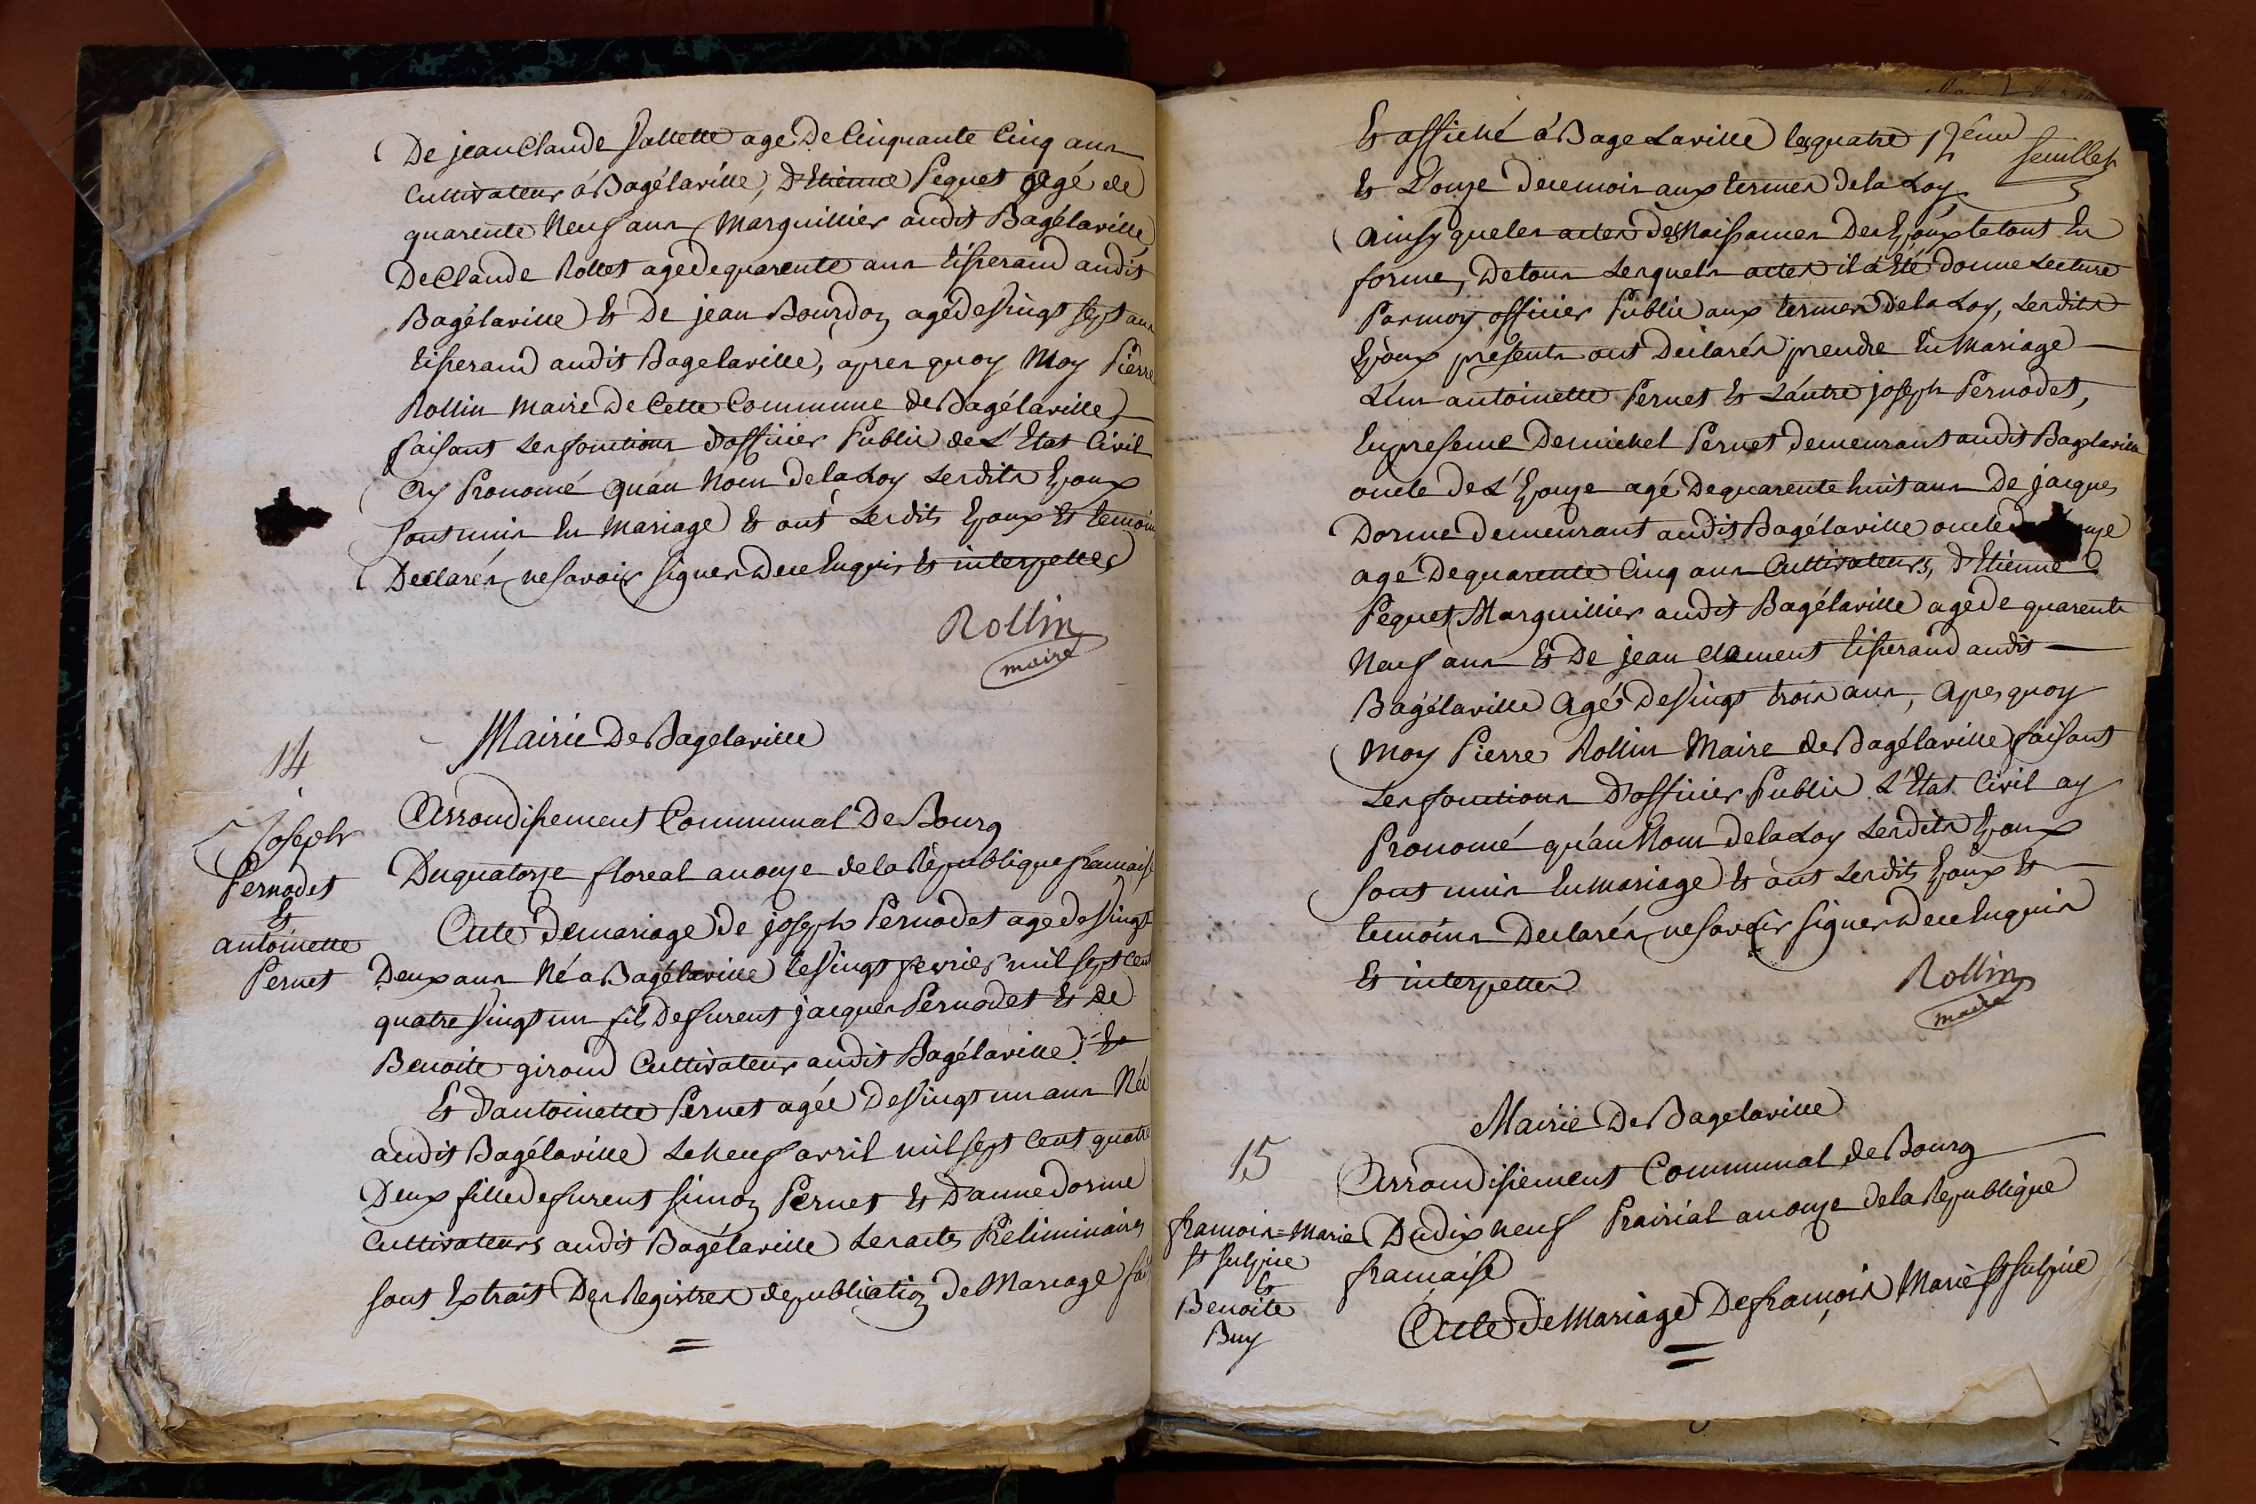 De jean Claude agé De Cinquante Cinq ans
Cultivateur á Bagélaville, D'Etienne Pequet agé de
quarente Neuf ans Marguillier audit Bagélaville
De Claude Rollet agé de quarente ans tisserand audit
Bagélaville Et De jean Bourdon agé de Vingt sept ans
tisserand audit Bagelaville, apres quoy Moy Pierre
Rollin Maire De Cette Commune de Bagélaville
faisant Les fonctions D'officier Public de L'Etat Civil
Ay Pronomé Qu'au Nom de la Loy Lesdits Epoux
sont unis En Mariage Et ont Lesdits Epoux Et temoins
Declarés ne savoir signer De ce Enquis Et interpettes
Rollin
maire
14
Joseph
Pernodet
Et
antoinette
Pernet
Mairie De Bagelaville
Arrondissement Communal De Bourg
Du quatorze floreal an onze de la République francaise
Acte de mariage de joseph Pernodet agé de Vingt
Deux ans Né a Bagélaville le Vingt fevrier mil sept cent
quatre Vingt un fils De furent jacques Pernodet Et de
Benoite giroud Cultivateur audit Bagélaville Et
Et D'antoinette Pernet agée De Vingt un ans Née
audit Bagélaville Le neuf avril mil sept Cent quatre
Deux fille de furent simon Pernet Et D'anne Dorme
Cultivateurs audit Bagélaville Les actes Préliminaires
sont Extrait Des Registres de publication de Mariage fait
Et affiché á Bage Laville les quatre
12eme
feuillet
Et Donze de ce mois aux termes de la Loy
Ainsy que les actes des Naissances Des Epoux le tout En
forme, De tous Lesquels actes il á Eté donné Lecture
Par moy officier Public aux termes De la Loy, Lesdits
Epoux presents ont Declarés prendre En Mariage
L'un antoinette Pernet Et L'autre joseph Pernodet,
En presence De michel Pernet demeurant audit Bagelaville
oncle de L'Epouze agé De quarente huit ans De jacques
Dorme demeurant audit Bagélaville oncle
agé De quarente Cinq ans Cultivateurs, D'Etienne
Pequet Marguillier audit Bagélaville agé de quarente
Neuf ans Et De jean clament tisserand audit
Bagélaville Agé De Vingt trois ans, Apes quoy
Moy Pierre Rollin Maire de Bagélaville faisant
Les fonctions D'officier Public L'Etat Civil ay
Pronomé qu'au Nom de la Loy Lesdits Epoux
sont unis En mariage Et ont Lesdits Epoux Et
temoins Declarés ne savoir signer De ce Enquis
Et interpettes
Rollin
maire
15
francois=Marie
St sulpice
Et
Benoite
Buy
Mairie De Bagelaville
Arrondissement Communal de Bourg
Du dix neuf Prairial an onze de la Republique
francaise
Acte de Mariage De françois Marie St sulpice